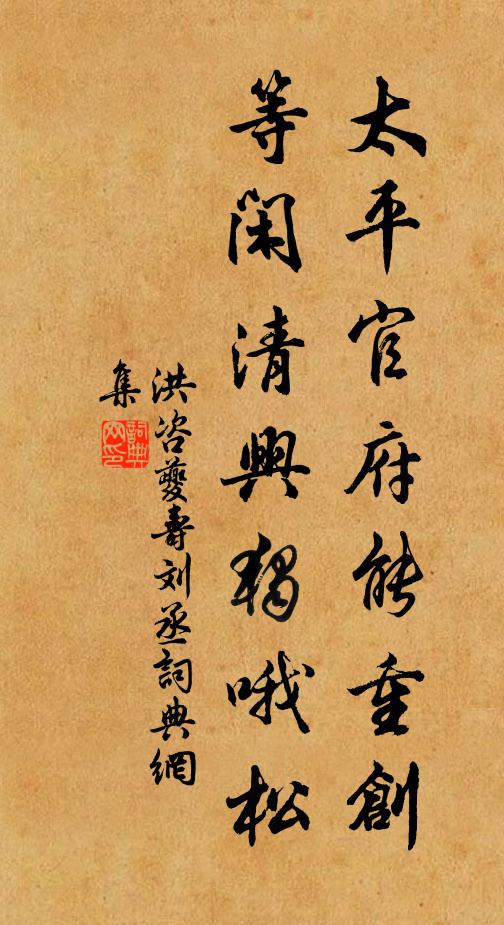 太平官府能重創
等閑清興獨哦松
洪咨夔壽刘丞詞典網
集
詞典網印